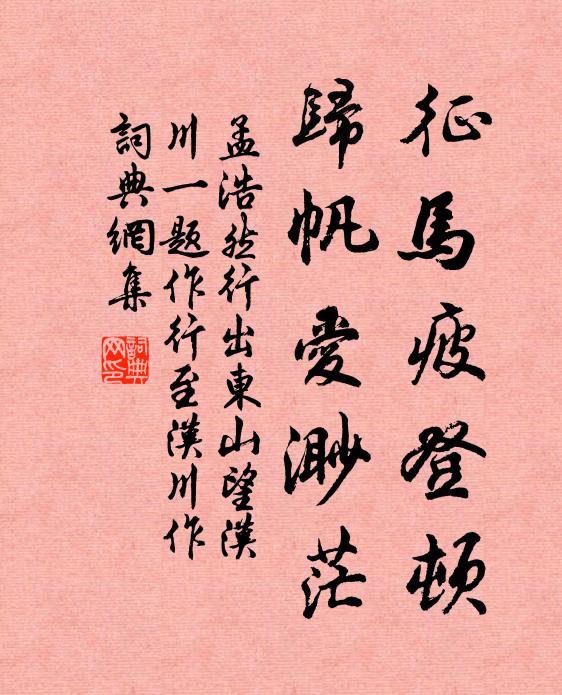 征馬疲登頓
歸帆愛渺茫
孟浩然行出東山望漢
川一題作行至漢川作
詞典網集
詞典
网印